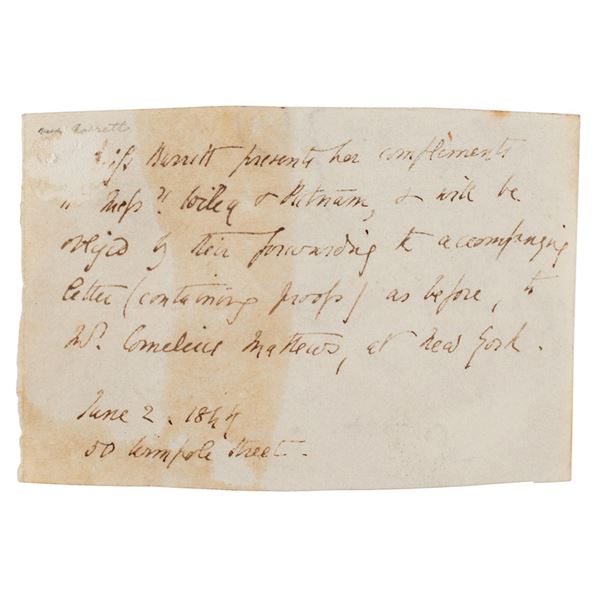 Barrett
iss Barrett presents her compliments
" Mess.rs Wiley & Putnam, & will be
obliged by their forwarding the accompanying
letter (containing proofs) as before, to
Mr. Cornelius Mathews, at New York.
June 2. 1844
50 Wimpole Street.